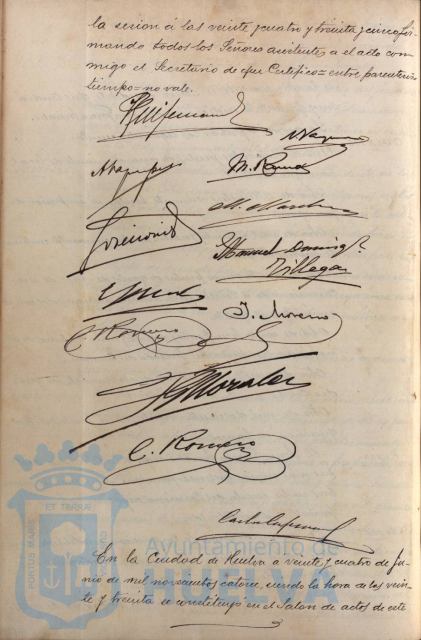 la sesion á las veinte y cuatro y treinta y cinco fir-
mando todos los Señores asistentes a el acto con-
migo el Secretario de que Certifico = entre parentesis
tiempo = no vale.
M. Romero
Manuel Doming.
Villegas
J. Moreno
C. Romero
Morales
C. Romero
ET TERRAE
PORTUS MARIS
Ayuntamiento de
HUELVA
En la Ciudad de Huelva a veinte y cuatro de Ju-
nio de mil novecientos catorce, siendo la hora de las vein-
te y treinta se constituyó en el Salon de actos de este